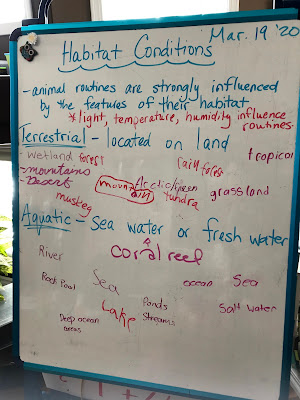 Mar. 19 '20
Habitat Conditions
- animal routines are strongly influenced
by the features of their habitat
*light, temperature, humidity influence
routines
Terrestrial - located on land
- wetland forest
rain forest
tropical
- mountains
- Desert
mountain
Arctic/green
tundra
grassland
muskeg
Aquatic - Sea water or fresh water
coral reef
River
Rock Pool
Sea
ocean
Sea
Lake
Ponds
Streams
Salt water
Deep ocean
areas